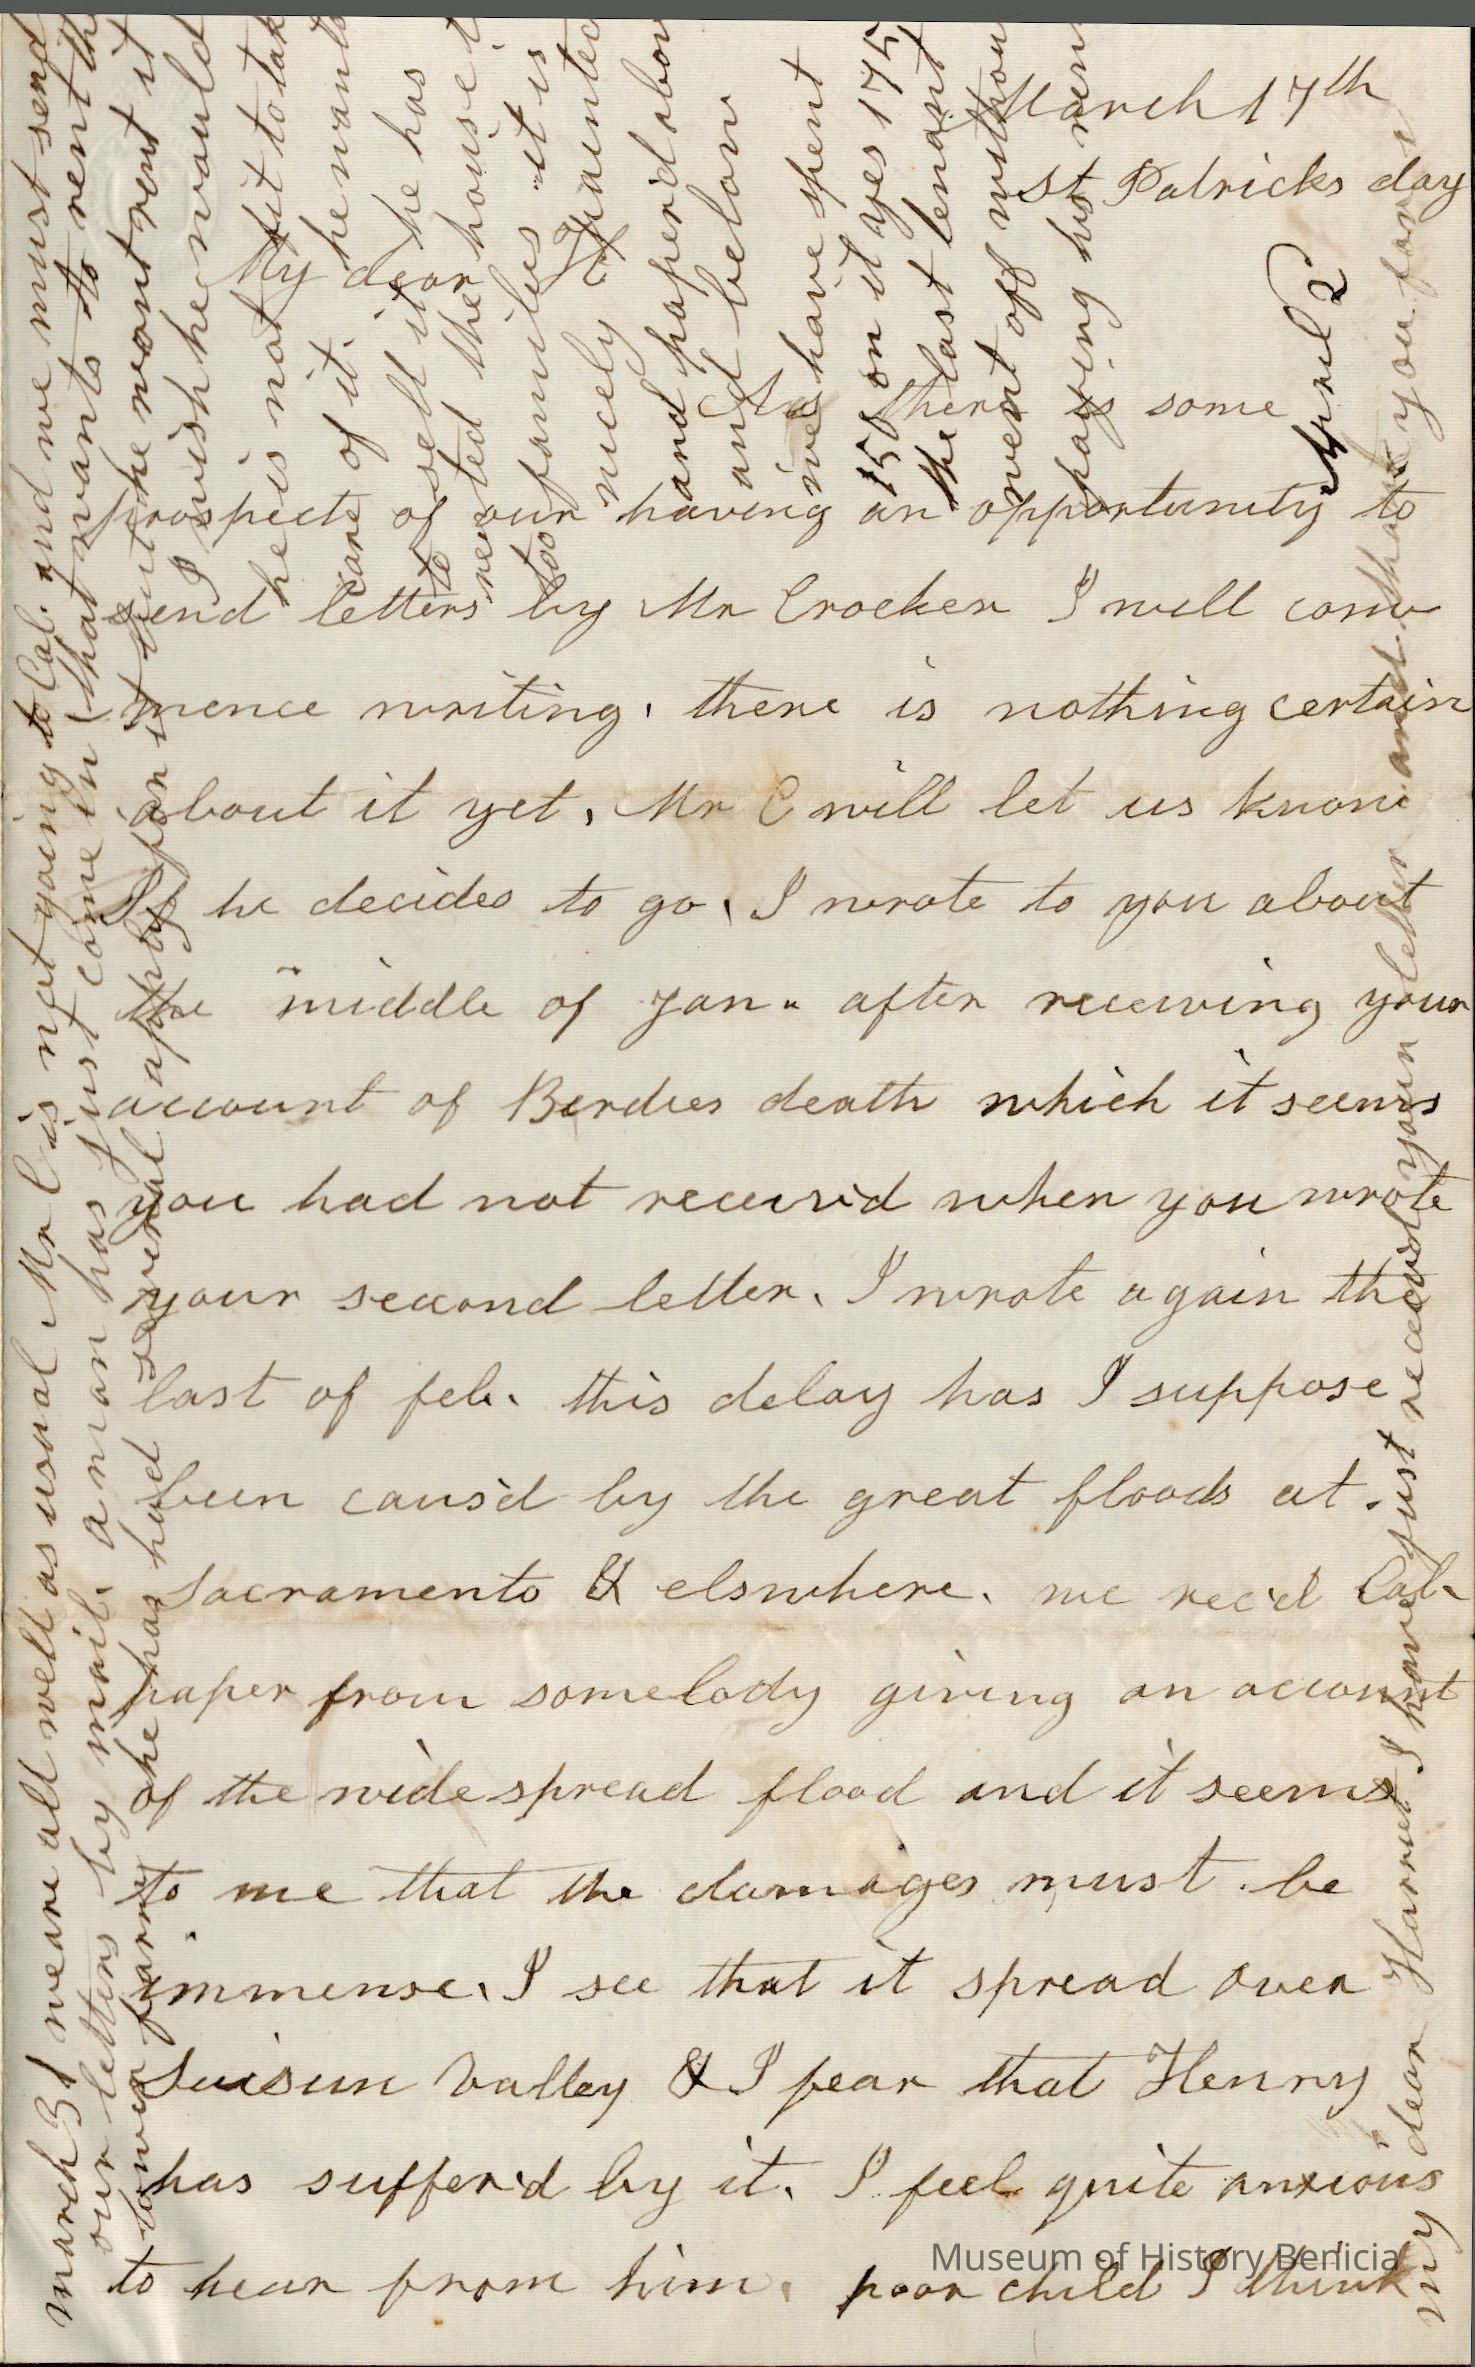 March 17th
St Patricks day
My dear H
As there is some
prospects of our having an opportunity to
send letters by Mr Crocker I will com
mence writing. there is nothing certain
about it yet, Mr C will let us know
If he decides to go. I wrote to you about
the middle of Jan. after receiving your
account of Berdies death which it seems
you had not receiv'd when you wrote
your second letter. I wrote again the
last of feb. this delay has I suppose
been caus'd by the great floods at.
Sacramento & elswhere. we rec'd Cal.
paper from somebody giving an account
of the wide spread flood and it seems
to me that the damages must be
immense. I see that it spread over
Suisun Valley & I fear that Henry
has suffer'd by it. I feel quite anxious
to hear from him. poor child I think
march 31 we are all well as usual Mr C is not going to Cal. and we must send
our letters by mail. a man has just come in that wants to rent the
tower farm he has had several apply for it but he wont rent it
I wish he would
he is not fit to take
care of it. he wants
to sell it he has
rented the house t
too families "it is
nicely painted
and paper'd abov
and below
we have spent
150 on it yes 175
the last tenant
went off withou
paying his ren
April 2
my dear Harriet I have just receivd your letter and thank you for
Museum of History Benicia